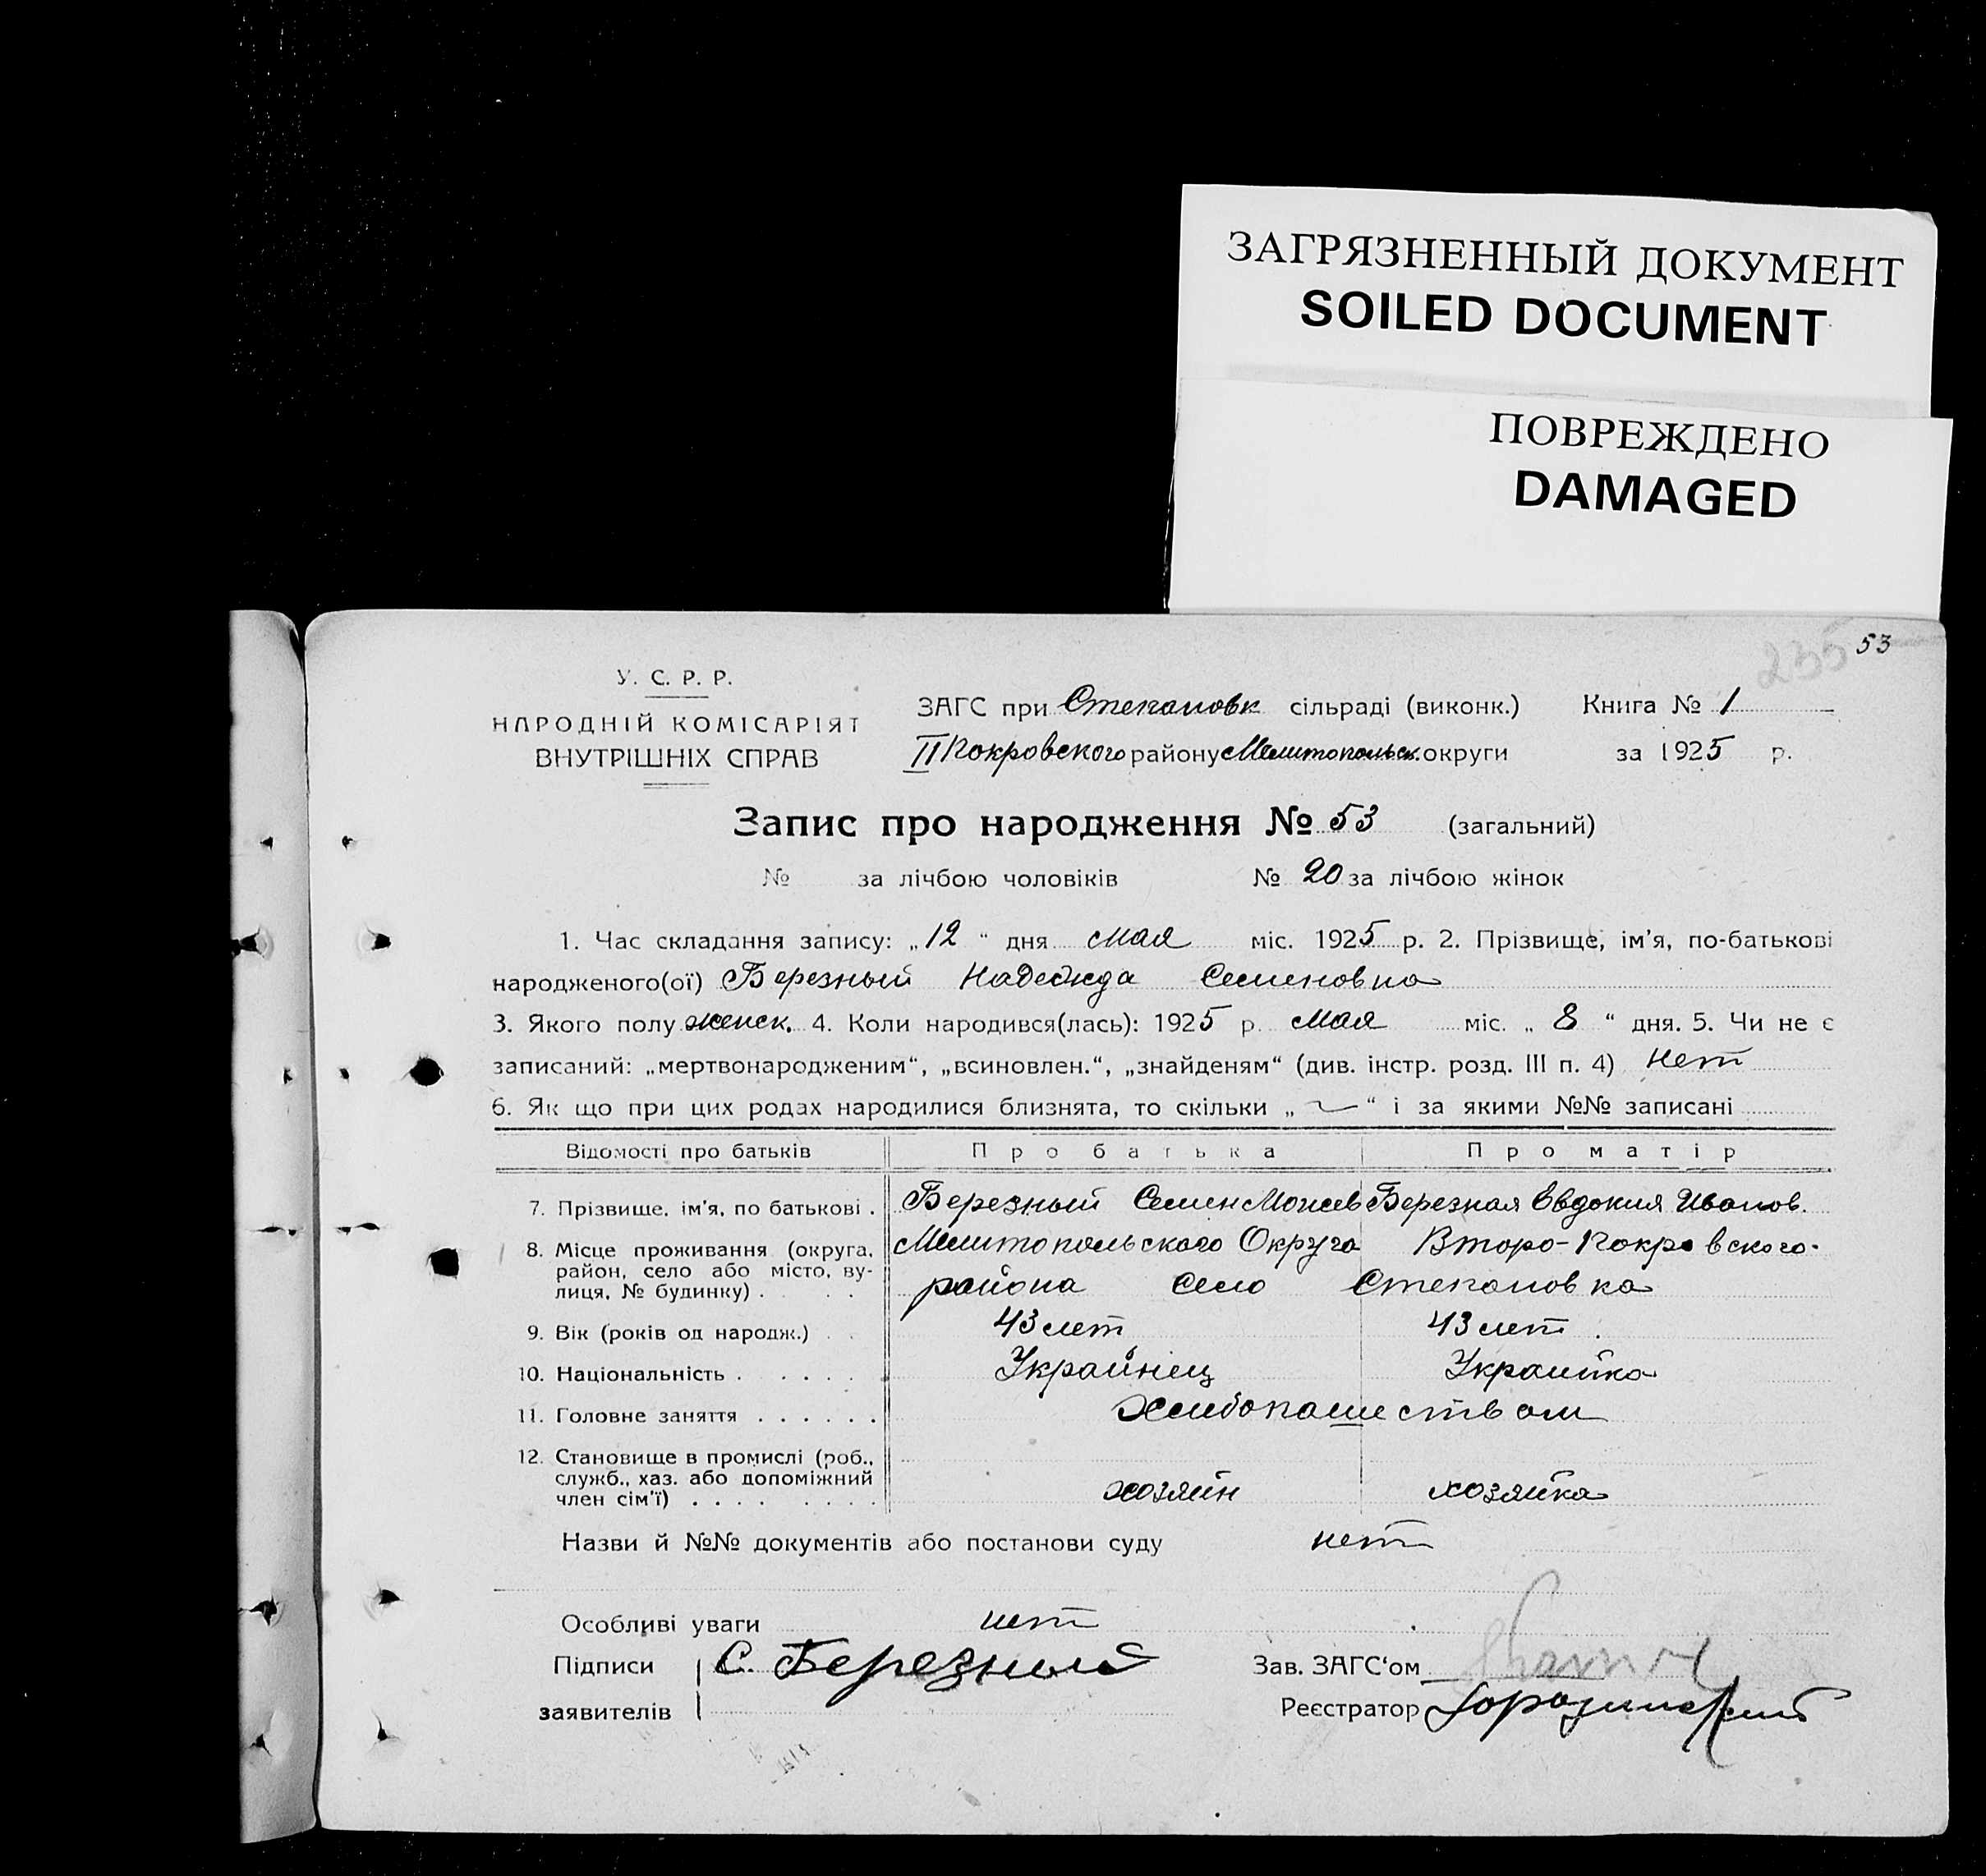 ЗАГРЯЗНЕННЫЙ ДОКУМЕНТ
SOILED DOCUMENT
ПОВРЕЖДЕНО
DAMAGED
235 53
У. С. Р. Р.
НАРОДНІЙ КОМІСАРІЯТ
ВНУТРІШНІХ СПРАВ
ЗАГС при Степановк сільраді (виконк.) Книга № 1
II Покровского району Мелитопольск. округи за 1925 р.
Запис про народження № 53 (загальний)
№ за лічбою чоловіків № 20 за лічбою жінок
1. Час складання запису: „12“ дня мая міс. 1925 р. 2. Прізвище, ім'я, по-батькові
народженого(ої) Березный Надежда Семеновна
3. Якого полу женск. 4. Коли народився(лась): 1925 р. мая міс. „8“ дня. 5. Чи не є
записаний: „мертвонародженим“, „всиновлен.“, „знайденям“ (див. інстр. розд. III п. 4) нет
6. Як що при цих родах народилися близнята, то скільки „ — “ і за якими №№ записані
Відомості про батьків Про батька Про матір
7. Прізвище, ім'я, по батькові . Березный Семен Моисеев Березная Евдокия Иванов.
8. Місце проживання (округа, Мелитопольского Округа Второ-Покровского
район, село або місто, ву-
лиця, № будинку) . района село Степановка
9. Вік (років од народж.) . . 43 лет 43 лет.
10. Національність . . . . . Украйнец Украинка
11. Головне заняття . . . . . . Хлибопашеством
12. Становище в промислі (роб.,
служб., хаз. або допоміжний
член сім'ї) . . . . . . . . хозяин хозяйка
Назви й №№ документів або постанови суду нет
Особливі уваги нет
Підписи С. Березный Зав. ЗАГС'ом
заявителів Реєстратор